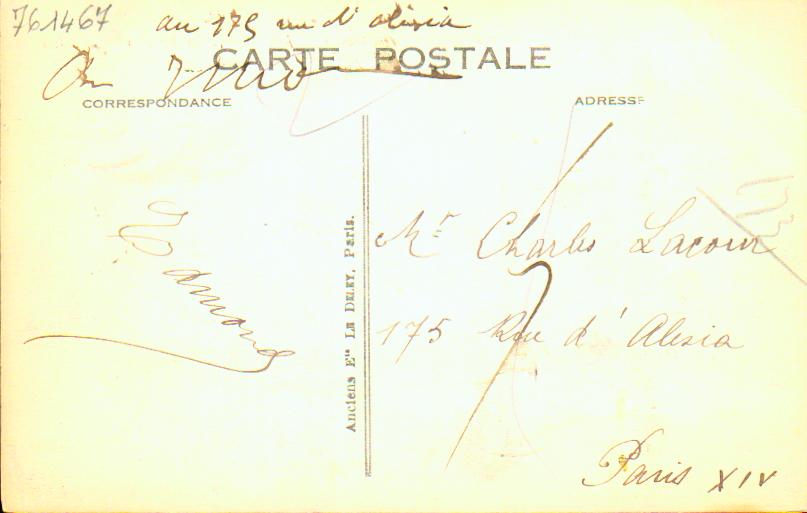 761467
au 175 rue d'alesia
CARTE POSTALE
CORRESPONDANCE
ADRESSE
Edmond
Anciens Éts LE DELEY, Paris.
Mr Charles Lacour
175 Rue d'Alesia
Paris XIV